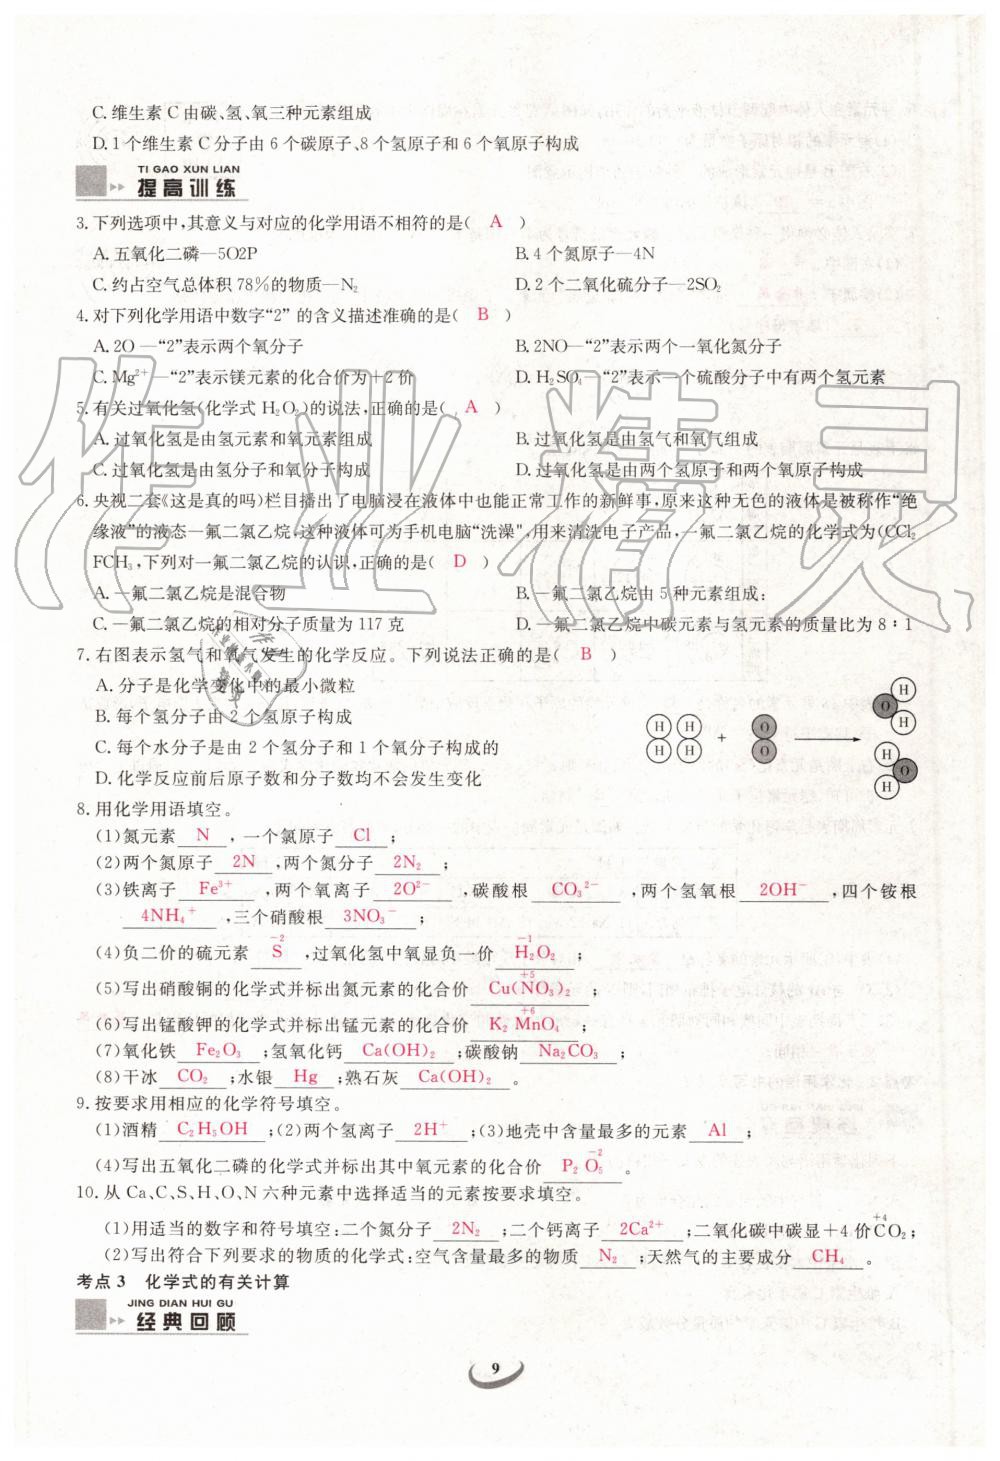 C.维生素 C 由碳、氢、氧三种元素组成
D.1 个维生素 C 分子由 6 个碳原子、8 个氢原子和 6 个氧原子构成
TI GAO XUN LIAN
提高训练
3.下列选项中,其意义与对应的化学用语不相符的是( A )
A.五氧化二磷—5O2P
B.4 个氮原子—4N
C.约占空气总体积 78%的物质—N₂
D.2 个二氧化硫分子—2SO₂
4.对下列化学用语中数字“2” 的含义描述准确的是( B )
A.2O —“2”表示两个氧分子
B.2NO—“2”表示两个一氧化氮分子
C.Mg²⁺—“2”表示镁元素的化合价为+2 价
D.H₂SO₄—“2”表示一个硫酸分子中有两个氢元素
5.有关过氧化氢(化学式 H₂O₂)的说法,正确的是( A )
A.过氧化氢是由氢元素和氧元素组成
B.过氧化氢是由氢气和氧气组成
C.过氧化氢是由氢分子和氧分子构成
D.过氧化氢是由两个氢原子和两个氧原子构成
6.央视二套《这是真的吗》栏目播出了电脑浸在液体中也能正常工作的新鲜事,原来这种无色的液体是被称作“绝
缘液”的液态一氟二氯乙烷,这种液体可为手机电脑“洗澡”,用来清洗电子产品,一氟二氯乙烷的化学式为(CCl₂
FCH₃,下列对一氟二氯乙烷的认识,正确的是( D )
A.一氟二氯乙烷是混合物
B.一氟二氯乙烷由 5 种元素组成:
C.一氟二氯乙烷的相对分子质量为 117 克
D.一氟二氯乙烷中碳元素与氢元素的质量比为 8∶1
7.右图表示氢气和氧气发生的化学反应。下列说法正确的是( B )
A.分子是化学变化中的最小微粒
B.每个氢分子由 2 个氢原子构成
C.每个水分子是由 2 个氢分子和 1 个氧分子构成的
D.化学反应前后原子数和分子数均不会发生变化
H H H H + O O → H O H H O H
8.用化学用语填空。
(1)氮元素 N ,一个氯原子 Cl ;
(2)两个氮原子 2N ,两个氮分子 2N₂ ;
(3)铁离子 Fe³⁺ ,两个氧离子 2O²⁻ ,碳酸根 CO₃²⁻ ,两个氢氧根 2OH⁻ ,四个铵根
4NH₄⁺ ,三个硝酸根 3NO₃⁻ ;
(4)负二价的硫元素 S(−2) ,过氧化氢中氧显负一价 H₂O₂(−1) ;
(5)写出硝酸铜的化学式并标出氮元素的化合价 Cu(NO₃)₂(+5) ;
(6)写出锰酸钾的化学式并标出锰元素的化合价 K₂MnO₄(+6) ;
(7)氧化铁 Fe₂O₃ ;氢氧化钙 Ca(OH)₂ ;碳酸钠 Na₂CO₃ ;
(8)干冰 CO₂ ;水银 Hg ;熟石灰 Ca(OH)₂ 。
9.按要求用相应的化学符号填空。
(1)酒精 C₂H₅OH ;(2)两个氢离子 2H⁺ ;(3)地壳中含量最多的元素 Al ;
(4)写出五氧化二磷的化学式并标出其中氧元素的化合价 P₂O₅(−2) 。
10.从 Ca、C、S、H、O、N 六种元素中选择适当的元素按要求填空。
(1)用适当的数字和符号填空:二个氮分子 2N₂ ;二个钙离子 2Ca²⁺ ;二氧化碳中碳显+4 价CO₂(+4);
(2)写出符合下列要求的物质的化学式:空气含量最多的物质 N₂ ;天然气的主要成分 CH₄ 。
考点 3 化学式的有关计算
JING DIAN HUI GU
经典回顾
9
作业精灵